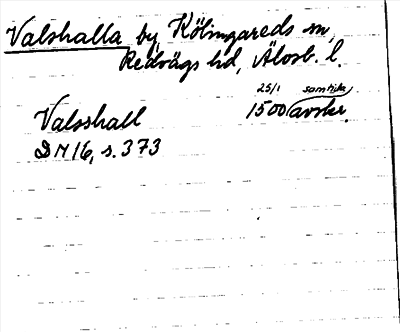 Valshalla by, Kölingareds sn,
Redvägs hd, Älvsb. l.
25/1 samtida
Valsshall 1500 (avskr.
DN 16, s. 373